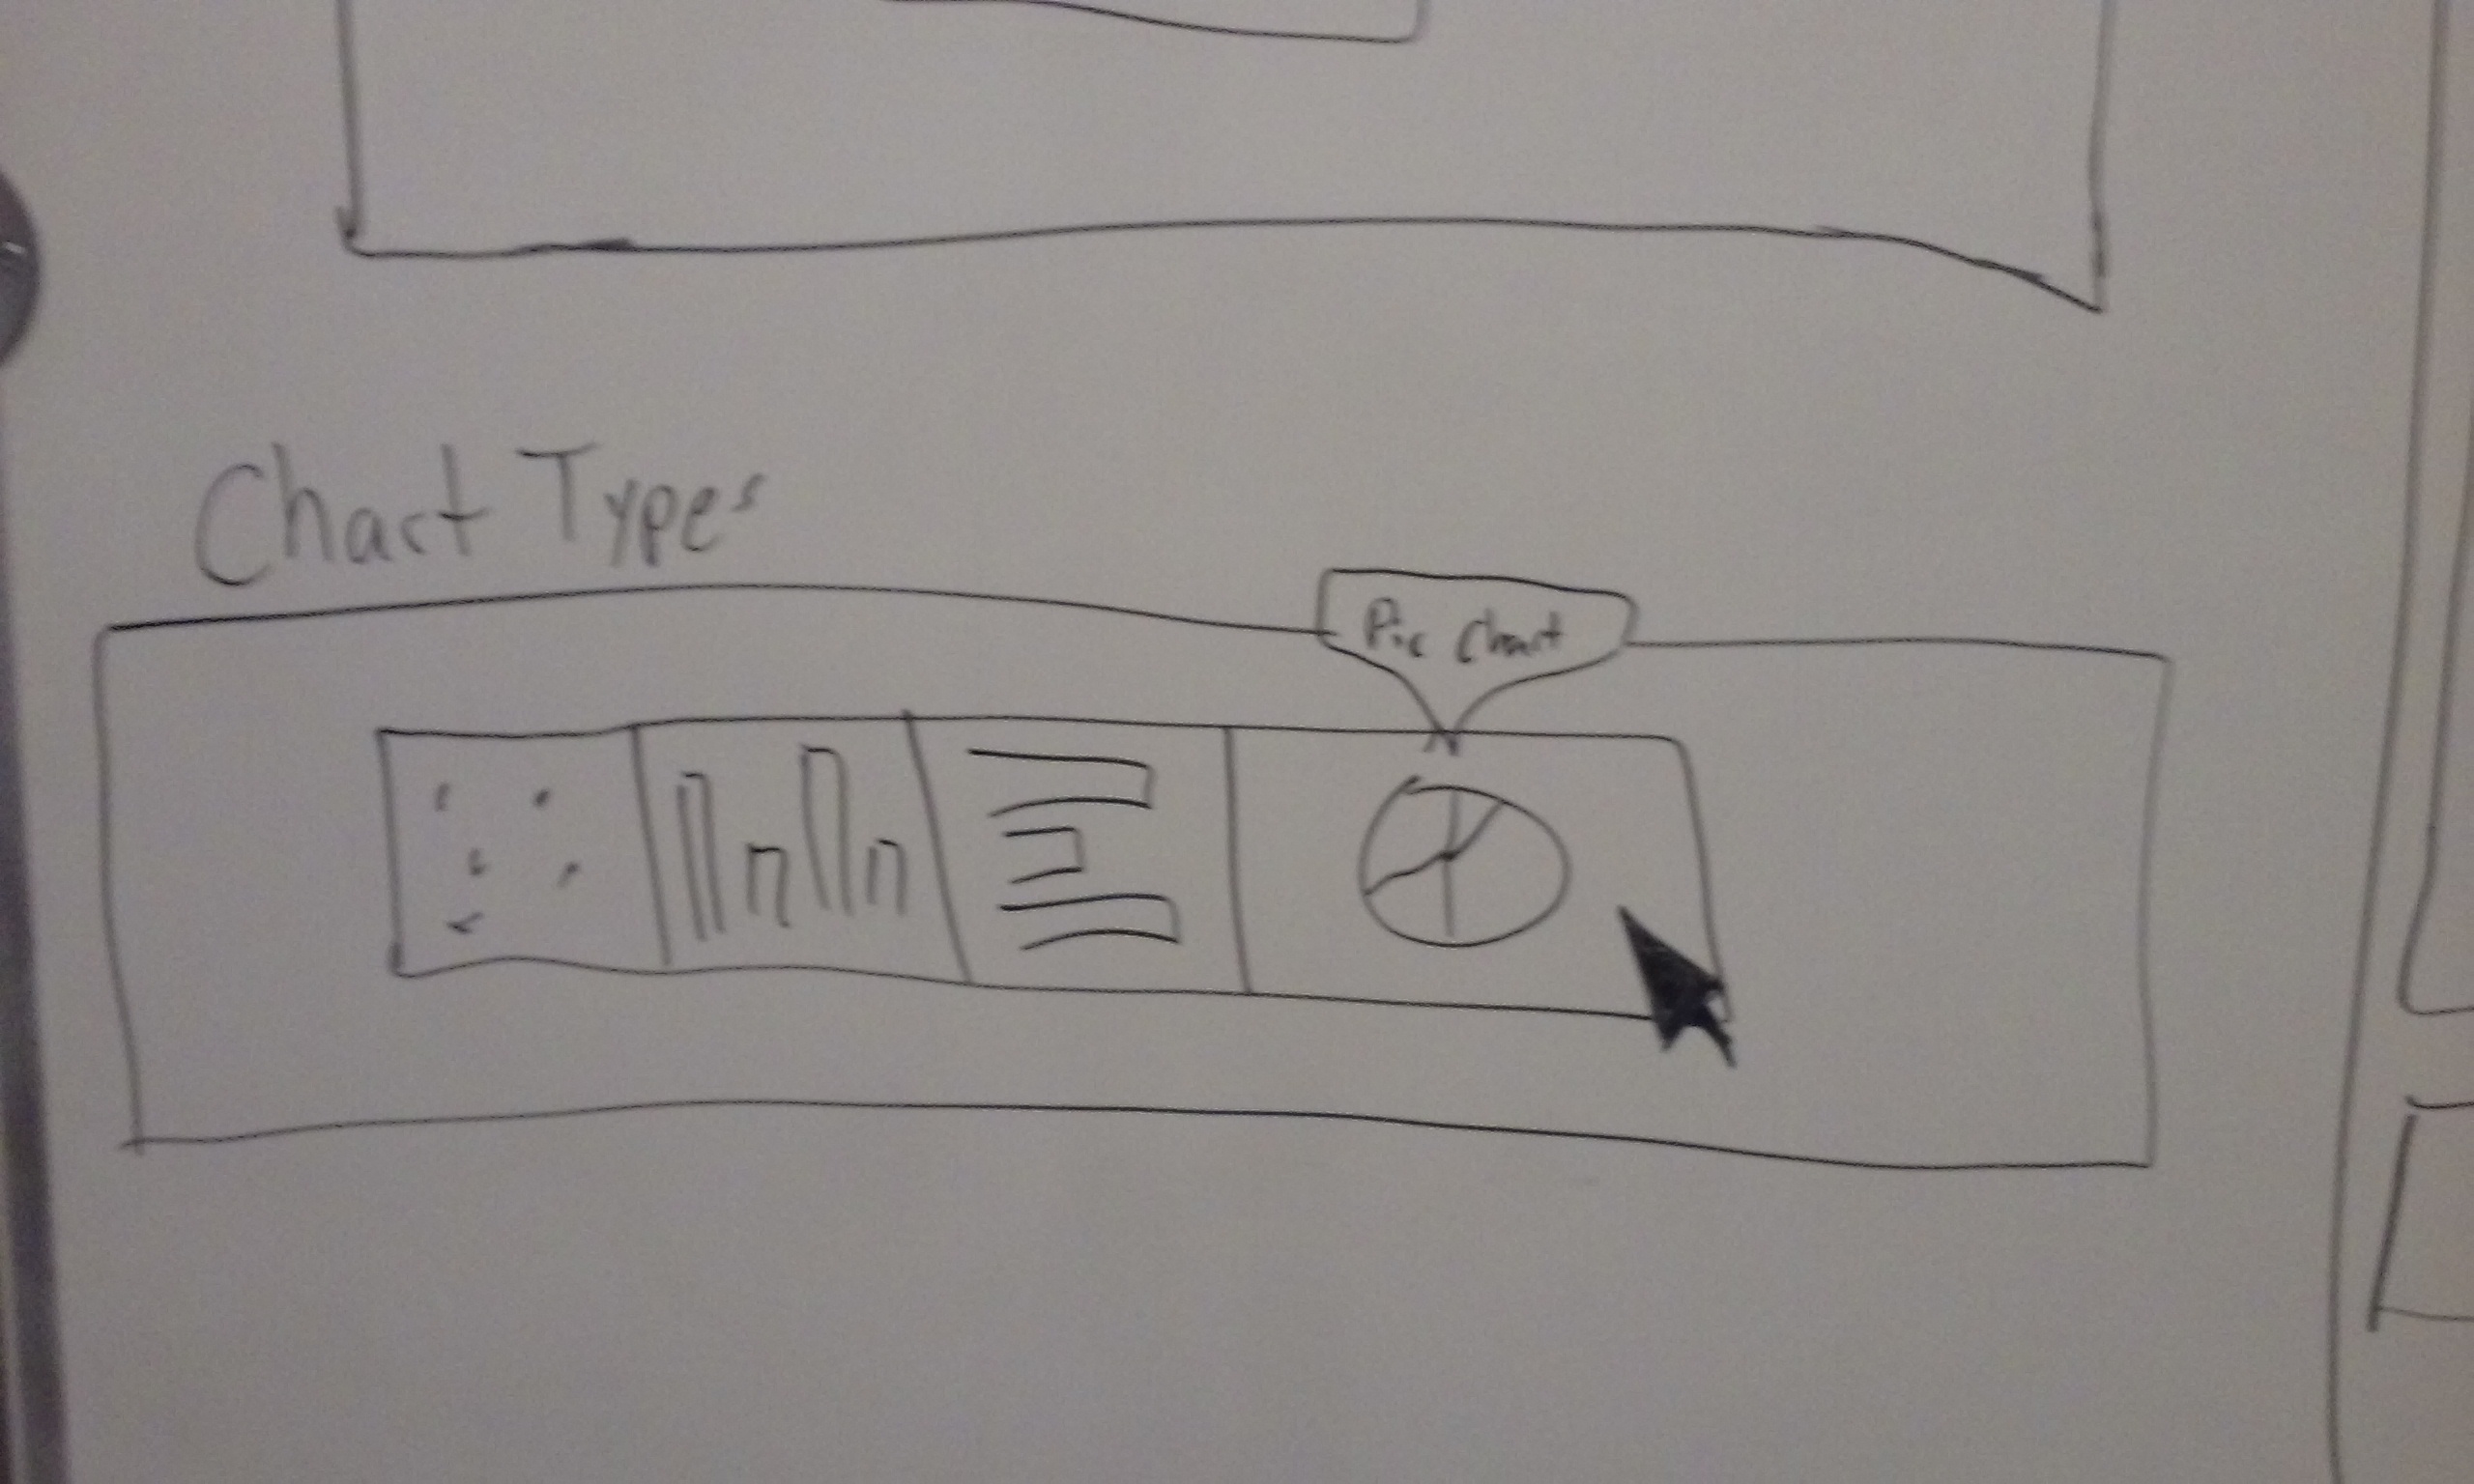 Chart Types
Pie Chart